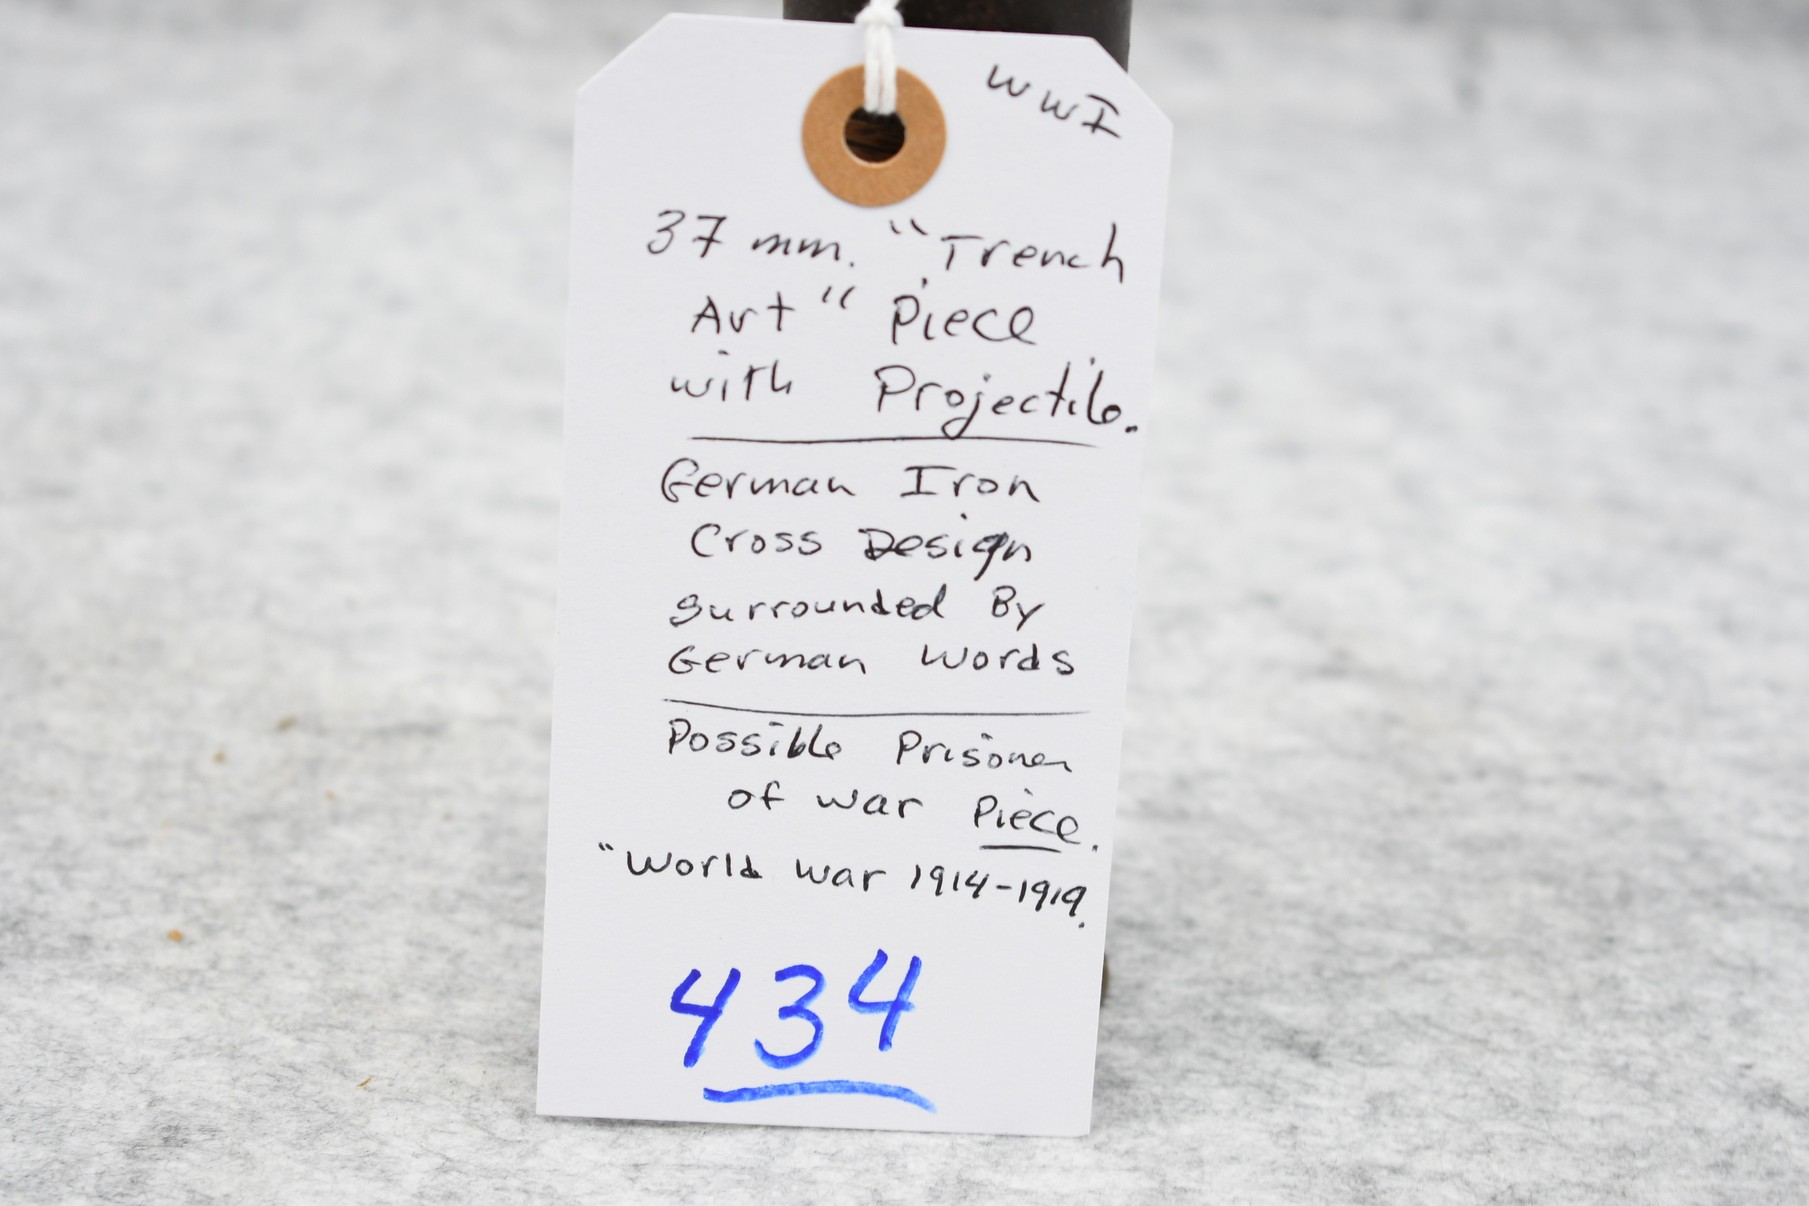 WWI
37 mm. "Trench
Art" Piece
with Projectile.
German Iron
Cross Design
surrounded By
German words
Possible Prisoner
of war Piece.
"World war 1914-1919.
434